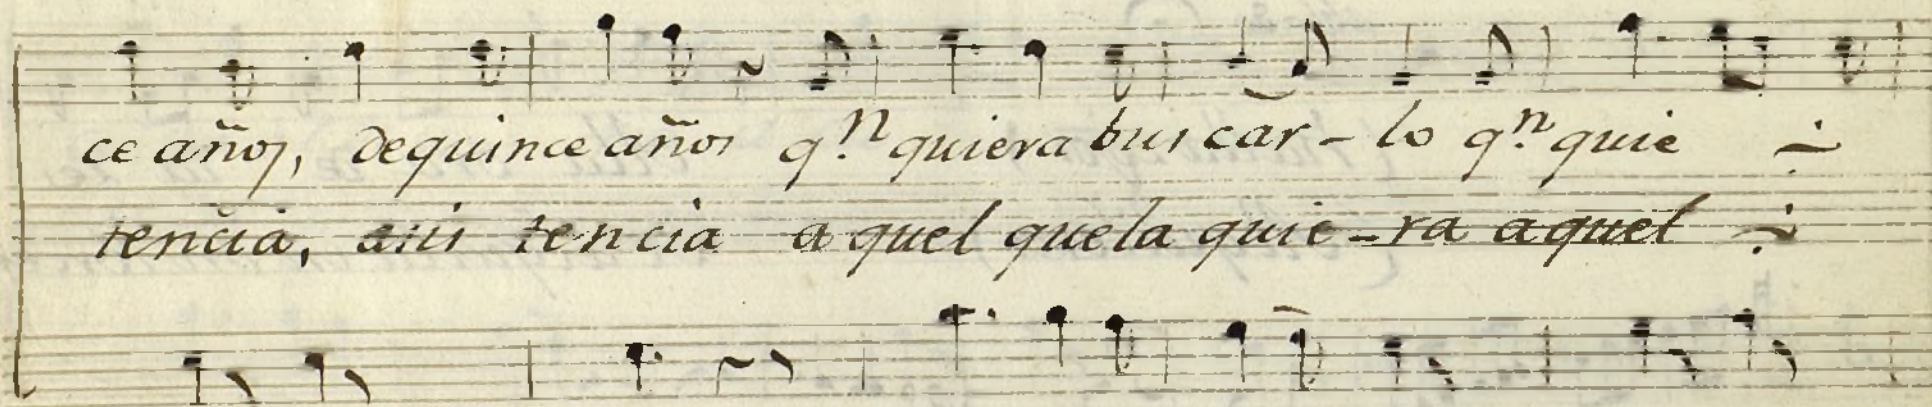 ce años, de quince años q.n quiera buscar-lo q.n quie
tencia, asis tencia a quel que la quie-ra aquel